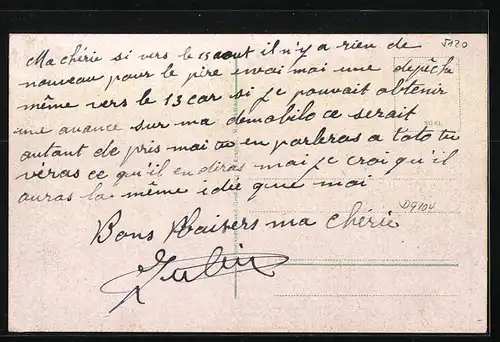 5120
Ma chérie si vers le 15 aout il n'y a rien de
nouveau pour le pire envoi mai une depêche
même vers le 13 car si je pouvait obtenir
une avance sur ma demobile ce serait
autant de pris mai tu en parleras a toto tu
véras ce qu'il en diras mai je croi qu'il
auras la même idée que mai
D9104
Bons Baisers ma chérie